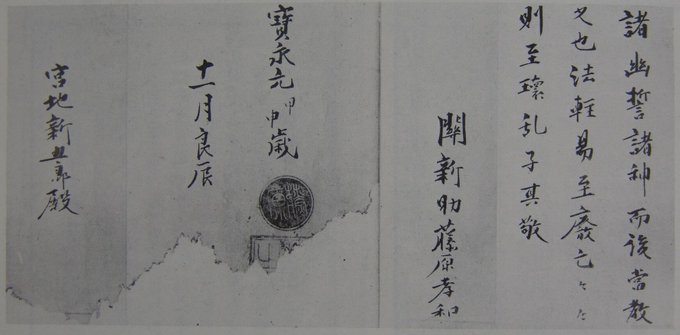 諸幽誓諸神而後當教
之也法輕易至廢亡々々
則至壞乱子其敬
關新助藤原孝和
寳永元甲申歳
十一月良辰
宮地新五郎殿